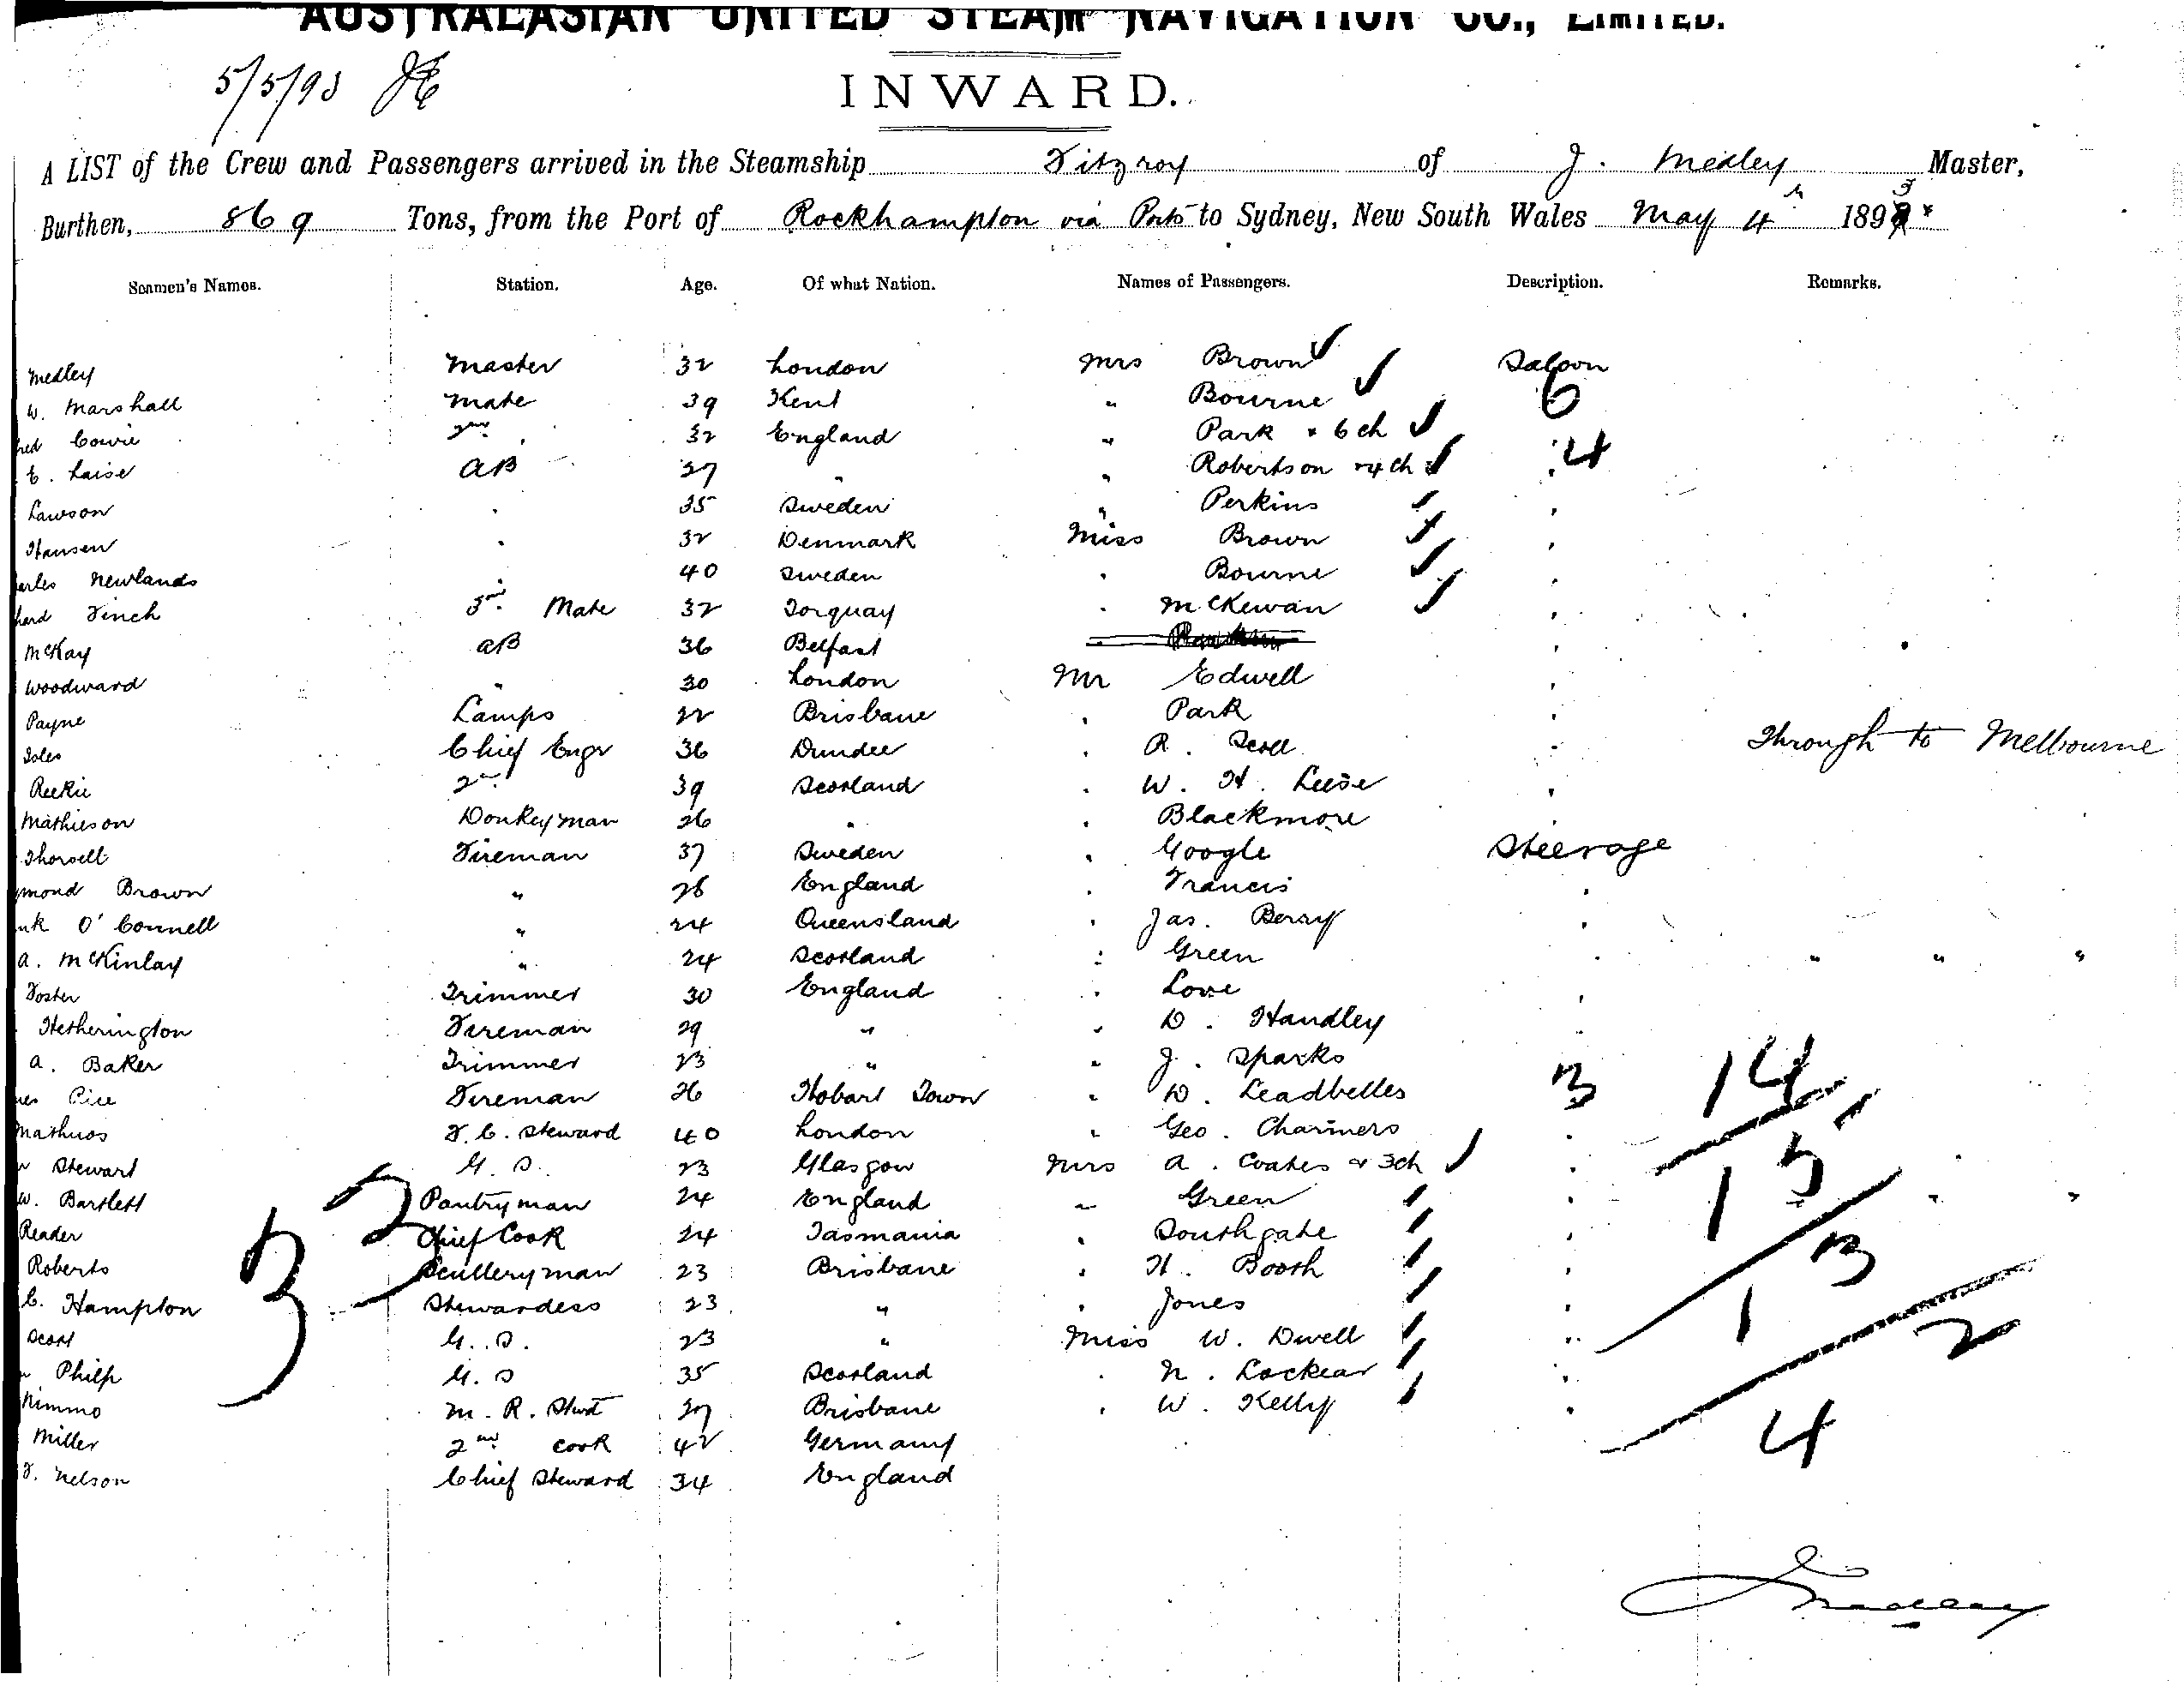 AUSTRALASIAN UNITED STEAM NAVIGATION CO., LIMITED.
5/5/93
INWARD.
A LIST of the Crew and Passengers arrived in the Steamship Fitzroy of J. Medley Master,
Burthen, 869 Tons, from the Port of Rockhampton via Ports to Sydney, New South Wales May 4th 1893
Seamen's Names. Station. Age. Of what Nation. Names of Passengers. Description. Remarks.
Medley Master 32 London Mrs Brown Saloon
W. Marshall Mate 39 Kent " Bourne 6
red Cowie 2nd 32 England " Park & 6 ch
E. Laise AB 27 " " Robertson & 4 ch 4
Lawson " 35 Sweden " Perkins "
Hansen " 32 Denmark Miss Brown "
arles Newlands " 40 Sweden " Bourne "
hard Finch 3rd Mate 32 Torquay " McKewan "
McKay AB 36 Belfast
Woodward " 30 London Mr Edwell "
Payne Lamps 22 Brisbane " Park "
Toles Chief Engr 36 Dundee " R. Scott " Through to Melbourne
Reekie 2nd 39 Scotland " W. H. Leese "
Mathieson Donkeyman 26 " " Blackmore "
Thorsell Fireman 37 Sweden " Google Steerage
ymond Brown " 26 England " Francis "
nk O'Connell " 24 Queensland " Jas. Berry "
A. McKinlay " 24 Scotland " Green " " " "
Foster Trimmer 30 England " Love "
Hetherington Fireman 29 " " D. Handley "
A. Baker Trimmer 23 " " J. Sparks 14
Fireman 26 Hobart Town " D. Leadbelles 3
F. C. Steward 40 London " Geo. Charmers "
Stewart G. S. 23 Glasgow Mrs A. Coates & 3 ch " 15
W. Bartlett Pantryman 24 England " Green " " "
Reader Chief Cook 24 Tasmania " Southgate "
Roberts Scullery man 23 Brisbane " H. Booth " 13
C. Hampton Stewardess 23 " " Jones "
Scott G. S. 23 " Miss W. Dwell "
Philp G. S 35 Scotland " N. Lockear "
Nimmo M. R. Stwd 27 Brisbane " W. Kelly "
Miller 2nd Cook 42 Germany 4
F. Nelson Chief Steward 34 England
32
J Medley